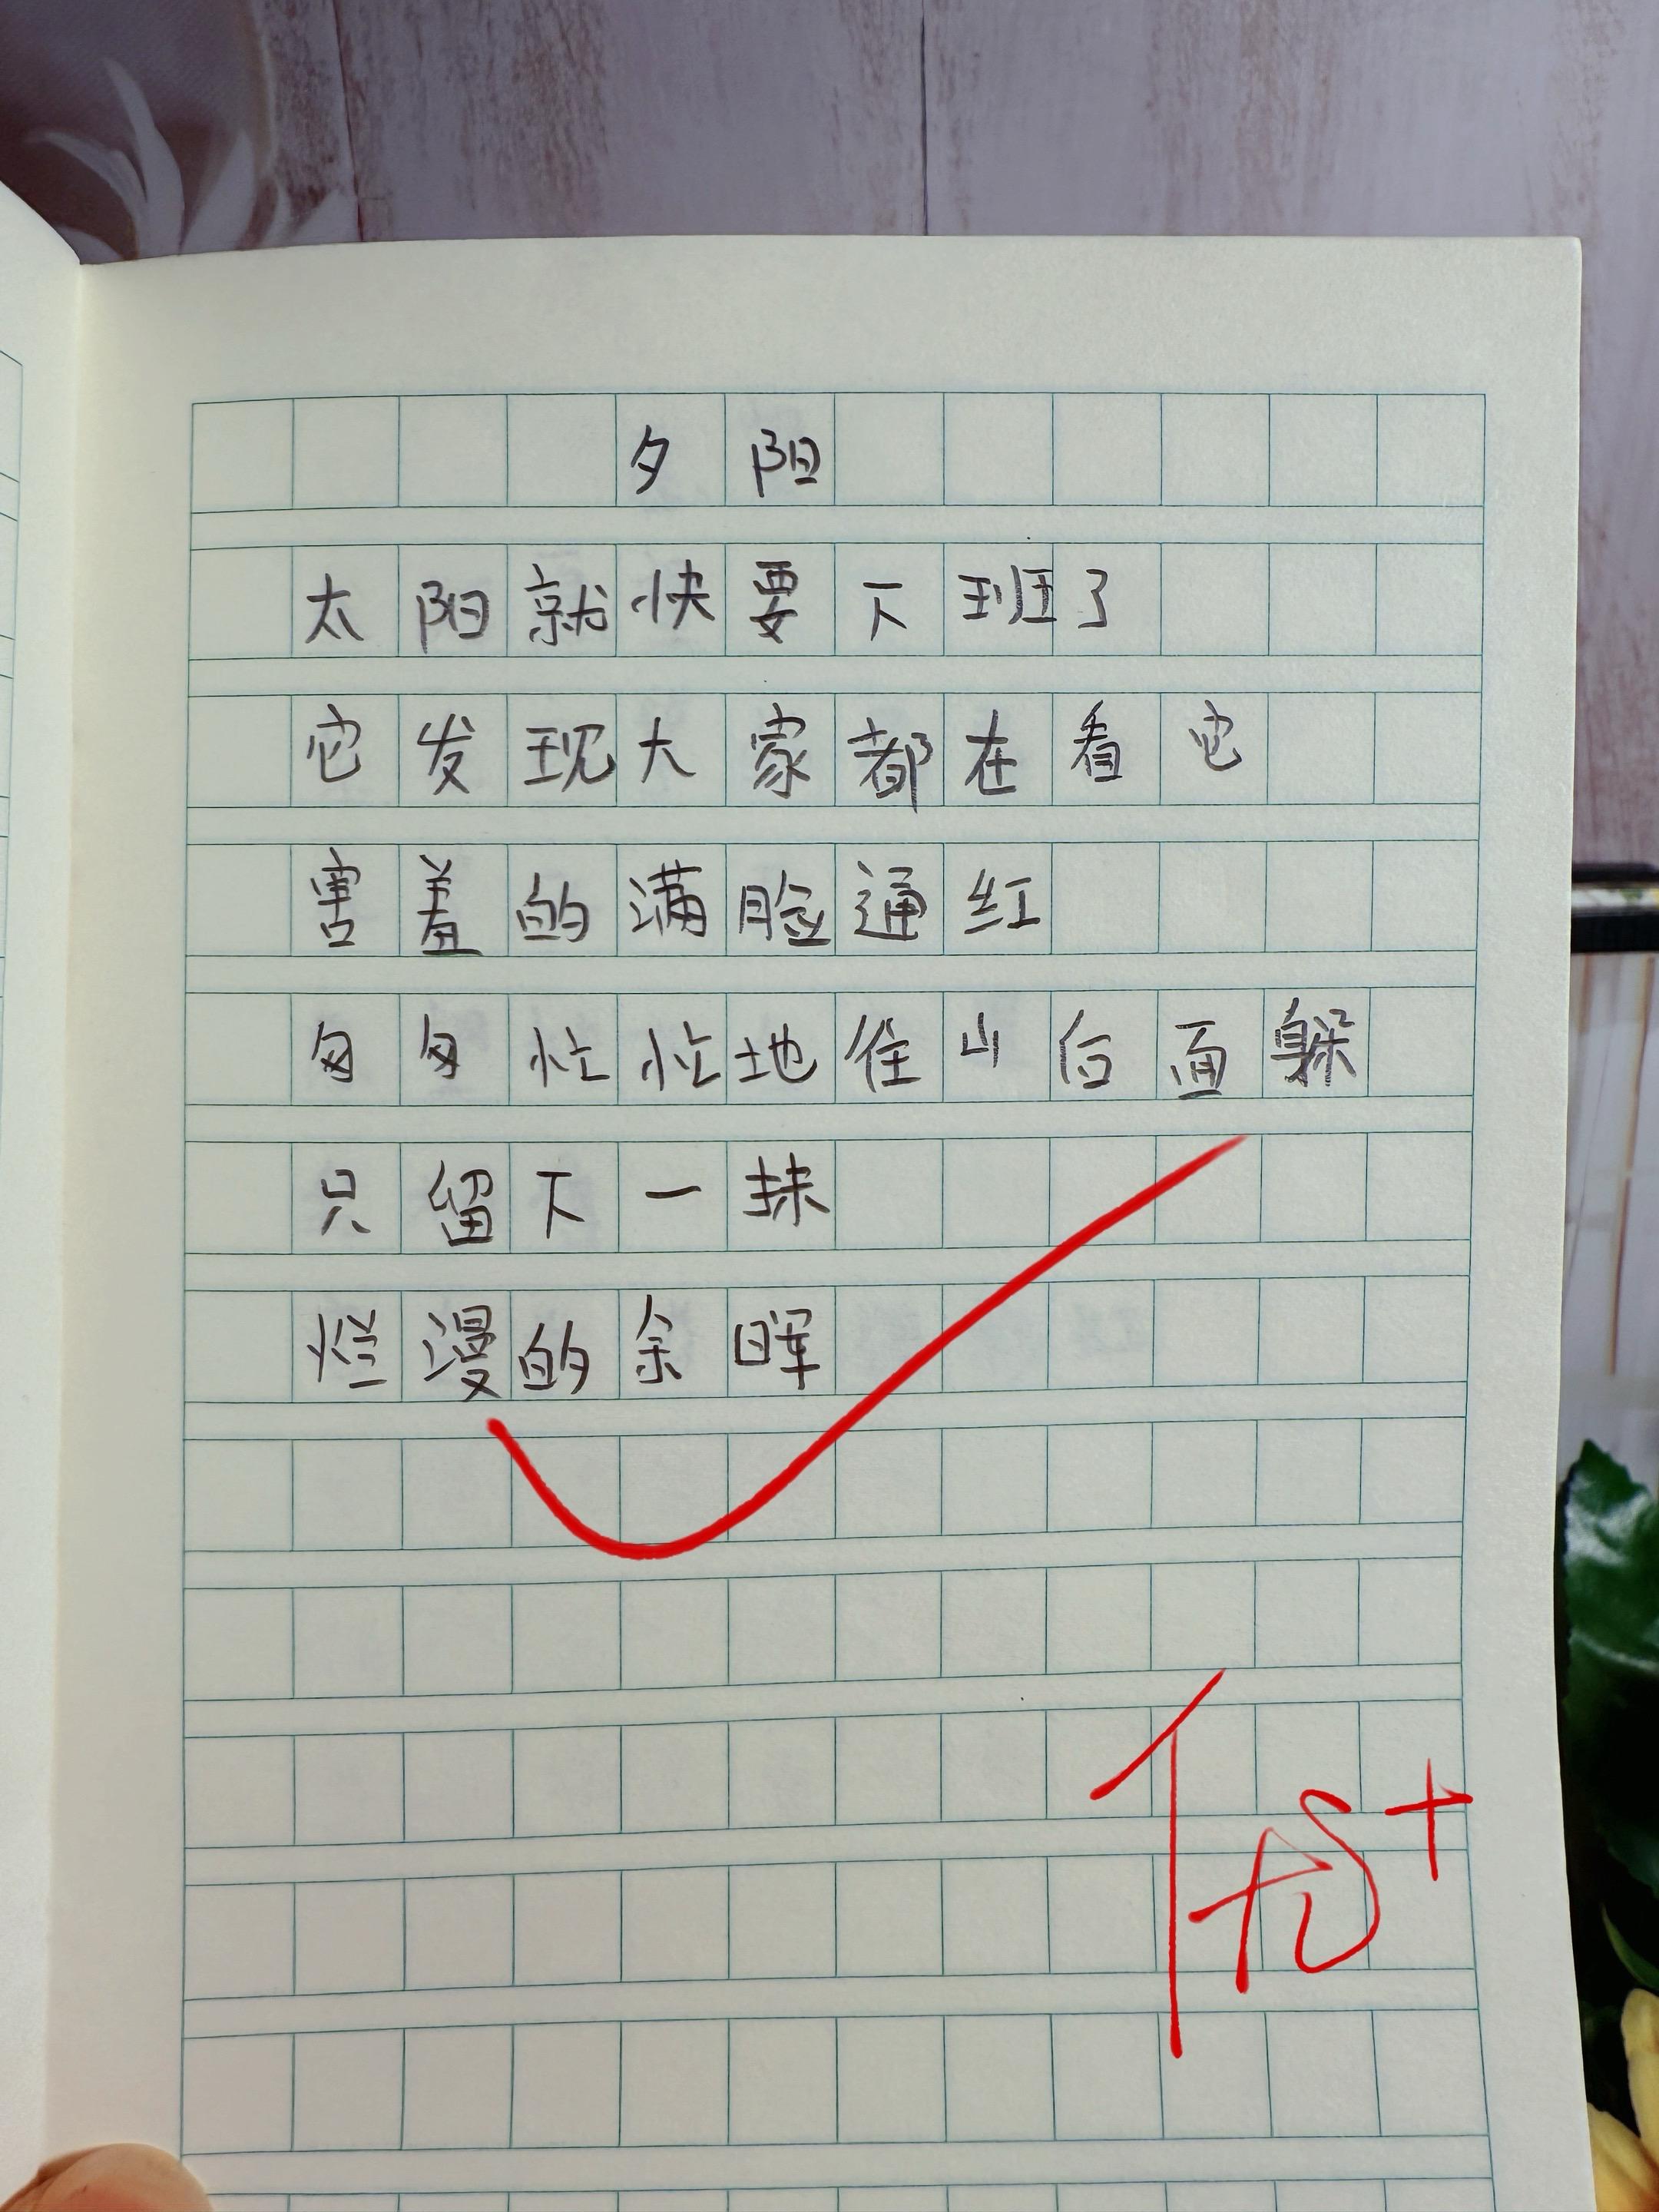 夕阳
太阳就快要下班了
它发现大家都在看它
害羞的满脸通红
匆匆忙忙地往山后面躲
只留下一抹
烂漫的余晖
优+